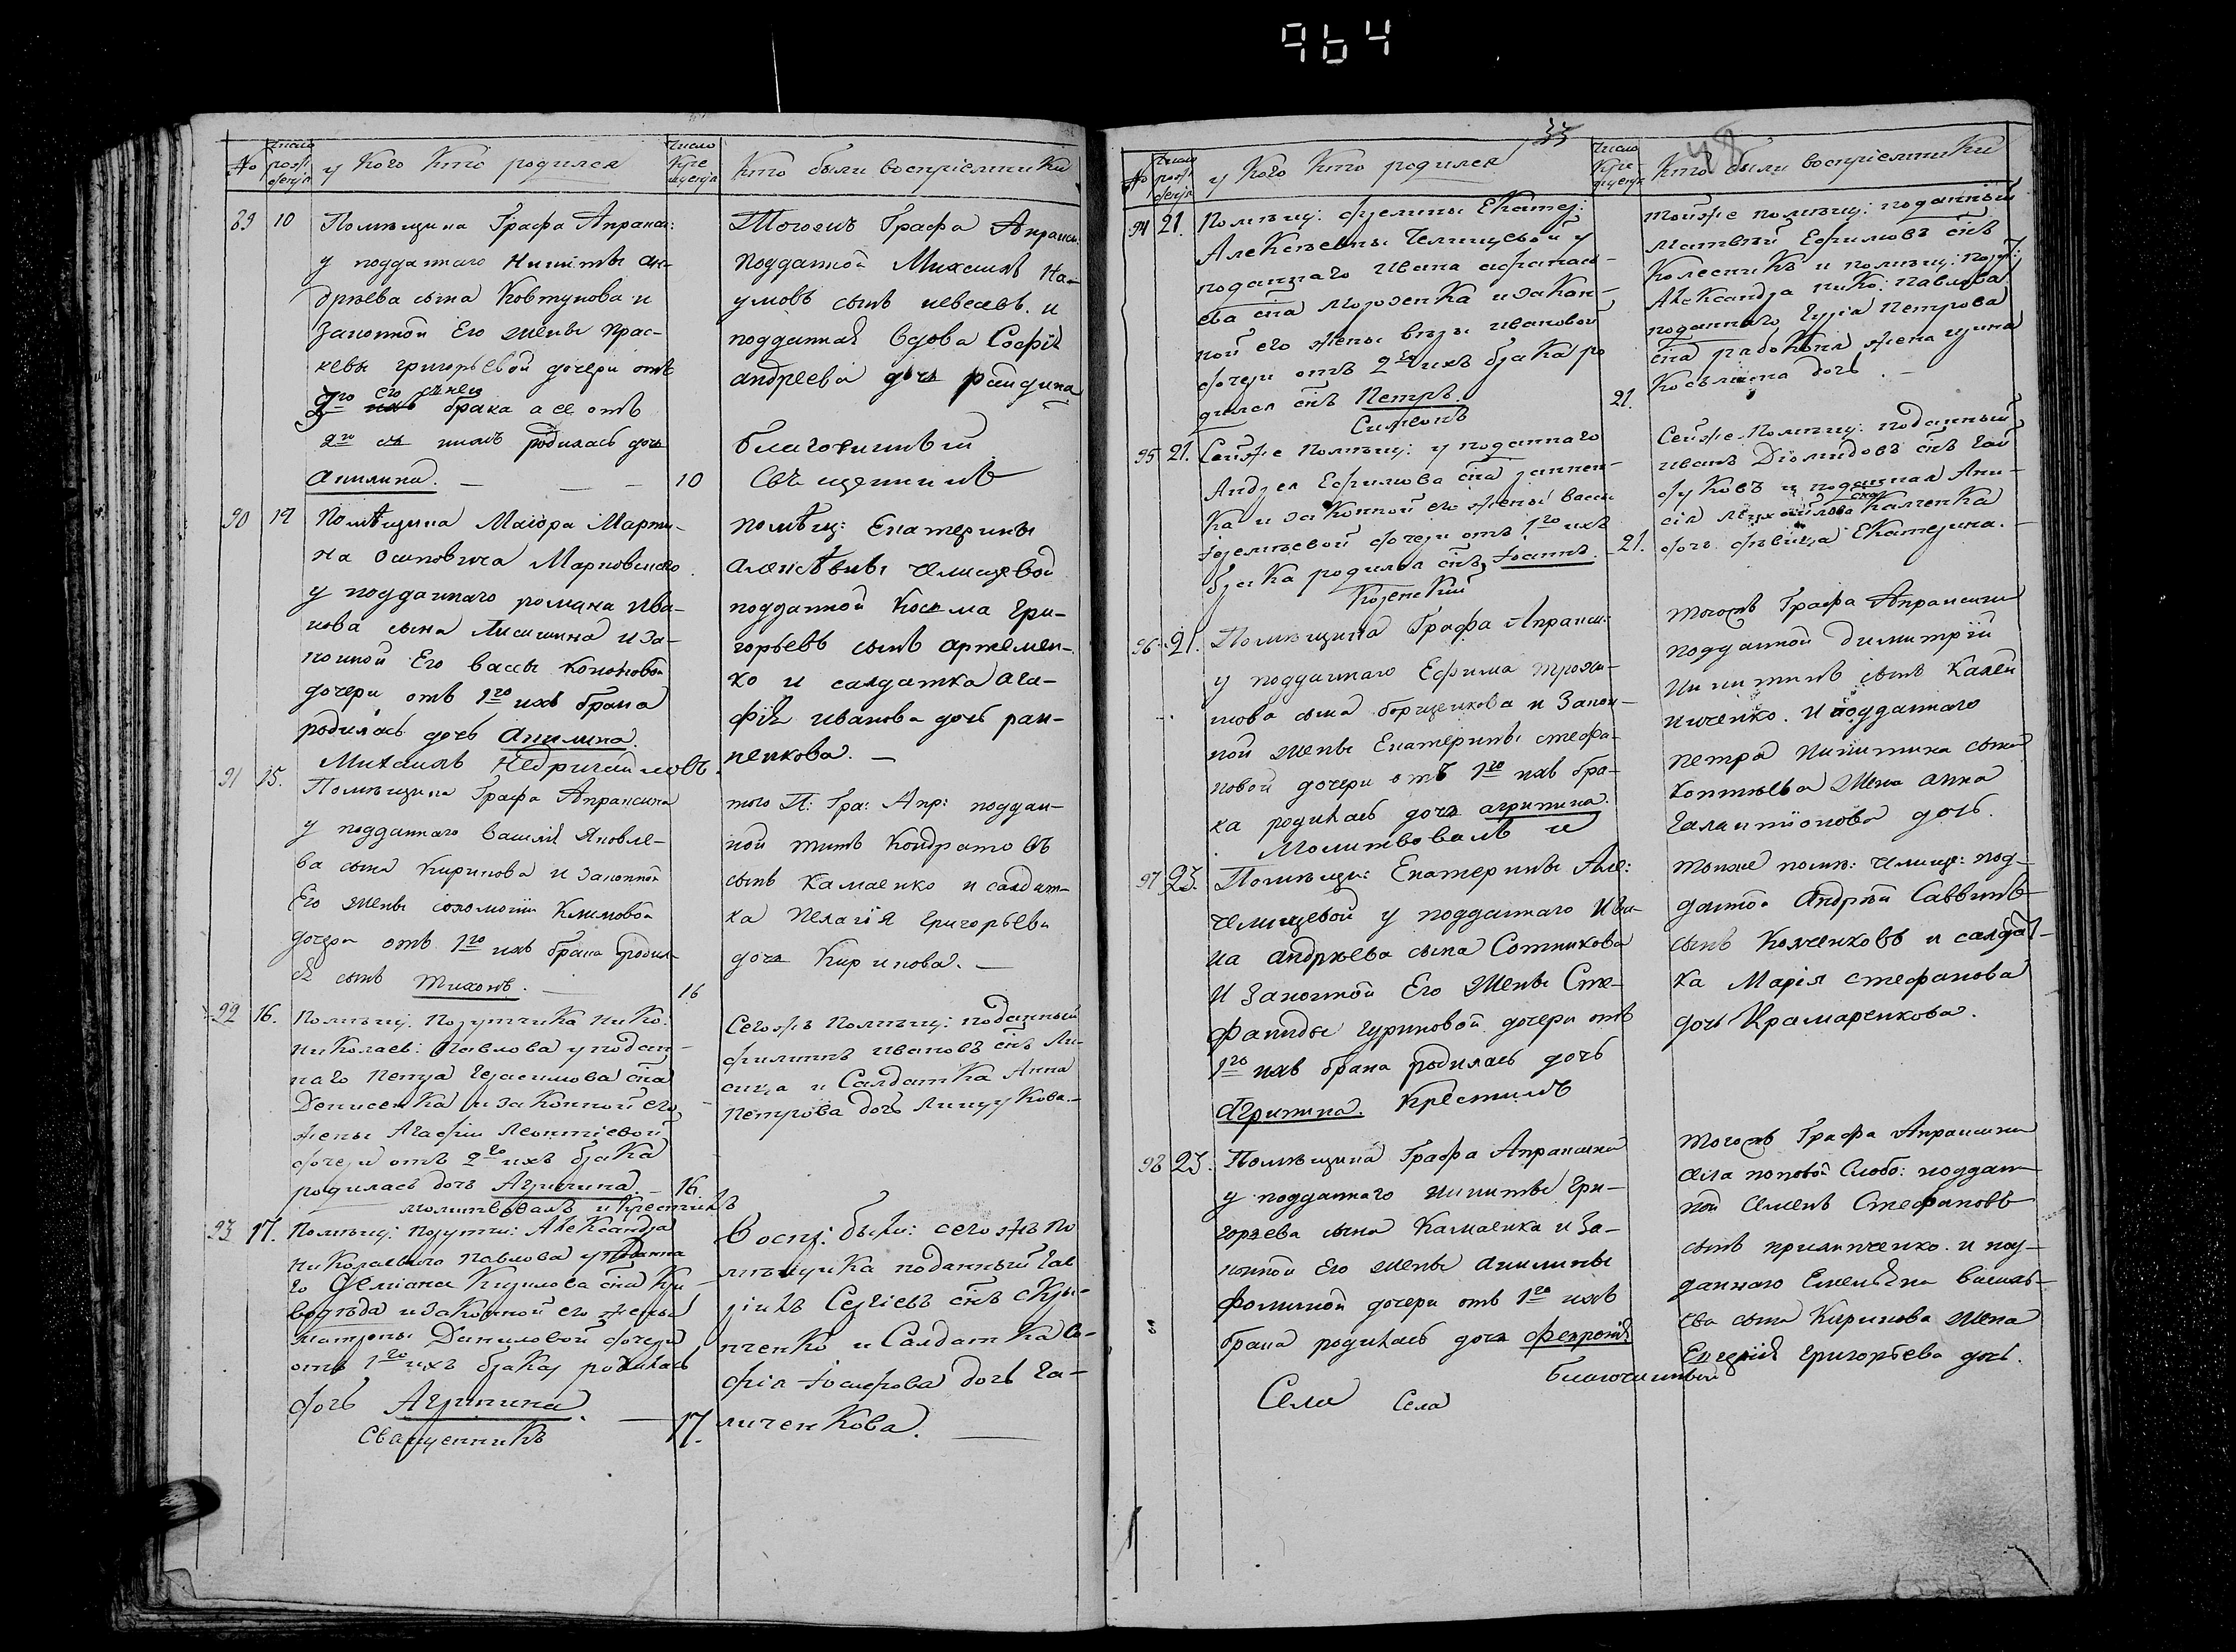 964
№
число рожденія
у Кого Кто родился
число Крещенія
Кто были воспріемники
89 10 Помѣщика Графа Апракси:
у подданаго Никиты ан-
дрѣева сына Ковтунова и
законной Его жены Прас-
кевы григорьевой дочери отъ
его снею
3го ихъ брака а ее отъ
2го съ нимъ родилась дочь
Акилина. — — — 10
Тогожъ Графа Апракси:
подданной Михаилъ На-
умовъ сынъ и
подданная вдова Софія
андреева дочь
благочинный
Священникъ
90 12 Помѣщика Маіора Марти-
на осиповича Марковскаго
у подданнаго романа ива-
нова сына Лисишина и за-
конной Его вассы Кононовой
дочери отъ 1го ихъ брака
родилась дочь Акилина.
Михаилъ Недригайловъ.
помѣщ: Екатерины
алексѣевны челищевой
подданной Косьма гри-
горьевъ сынъ артемен-
ко и салдатка ага-
фія иванова дочь
91 15. Помѣщика Графа Апраксина
у подданнаго василія яковле-
ва сына Кирикова и законной
Его жены соломоніи Климовой
дочери отъ 1го ихъ брака родил-
ся сынъ Тихонъ. — 16
того П: Гра: Апр: поддан-
ной титъ Кондратовъ
сынъ Камаенко и салдат-
ка Пелагія григорьева
дочь Кирикова. —
92 16. Помѣщи: Порутчика Нико:
Николаев: Павлова у подан-
наго Петра Герасимова сна
Денисенка и законной его
жены Агафіи Леонтіевой
дочери отъ 2го ихъ брака
родилась дочь Агрипина. — 16.
молитвовалъ и крестилъ
Сегожъ Помѣщи: поданный
филиппъ Ивановъ снъ Ли-
сица и Салдатка Анна
Петрова дочь
93 17. Помѣщи: Порутчи: Александра
Николаевича Павлова у поданна
го Деміана Кирилова сна Кри-
and законной его жены
матроны Даниловой дочери
отъ 1го ихъ брака родилась
дочь Агрипина. — 17.
Священникъ
Воспр: были: сегожъ По
мѣщика поданный Гав
ріилъ Сергіевъ снъ
и Салдатка Со-
фія Іосифова дочь Га-
личенкова. —
№
число рожденія
у Кого Кто родился
33
число Крещенія
48
Кто были воспріемники
94 21. Помѣщи: Екатер:
Алексѣевны Челищевой у
поданнаго Ивана афанась-
ева сна Морозенка и закон-
ной его жены вѣры Ивановой
дочери отъ 2го ихъ брака ро
дился снъ Петръ. 21.
Симеонъ
тойже помѣщи: поданный
Матвѣй Ефимовъ снъ
Колесникъ и помѣщи: пору:
Александра Нико: Павлова
поданнаго Гурія Петрова
сна жена ирина
Косьмина дочь. —
95 21. Сейже Помѣщи: у поданнаго
Андрея Ефимова сна
ка и законной его жены васси
дочери отъ 1го ихъ
брака родился снъ Іоаннъ. 21.
Коренскій
Сейже Помѣщи: поданный
Иванъ Діомидовъ снъ Гай
дуковъ и поданная Ани-
сія Камченка
дочь дѣвица Екатерина. —
96 21. Помѣщика Графа Апракси:
у подданнаго Ефима трофи-
мова сына борщенкова и закон-
ной жены Екатерины стефа-
новой дочери отъ 1го ихъ бра-
ка родилась дочь агрипина.
Молитвовалъ и
тогожъ Графа Апраксина
подданной димитрій
Никитинъ сынъ Калей
ниченко. и подданнаго
петра Никитина сына
Коптѣева жена анна
галактіонова дочь.
97 23. Помѣщи: Екатерины Але:
челищевой у подданнаго Ива-
на андрѣева сына Сотникова
и законной Его жены Сте-
фаниды гуриновой дочери отъ
1го ихъ брака родилась дочь
Агрипина. Крестилъ
тойже помѣ: челище: под-
данной Андрѣй Саввинъ
сынъ Колченковъ и салдат-
ка Марія стефанова
дочь Крамаренкова.
98 23. Помѣщика Графа Апраксина
у подданнаго никиты гри-
горьева сына Камаенка и за-
конной Его жены акилины
фоминой дочери отъ 1го ихъ
брака родилась дочь Февронія
благочинный
Села Села
тогожъ Графа Апраксина
села поповой Слобо: поддан
ной Семенъ Стефановъ
сынъ и под-
даннаго Емельяна василь-
ева сына Кирикова жена
Евгенія григорьева дочь.